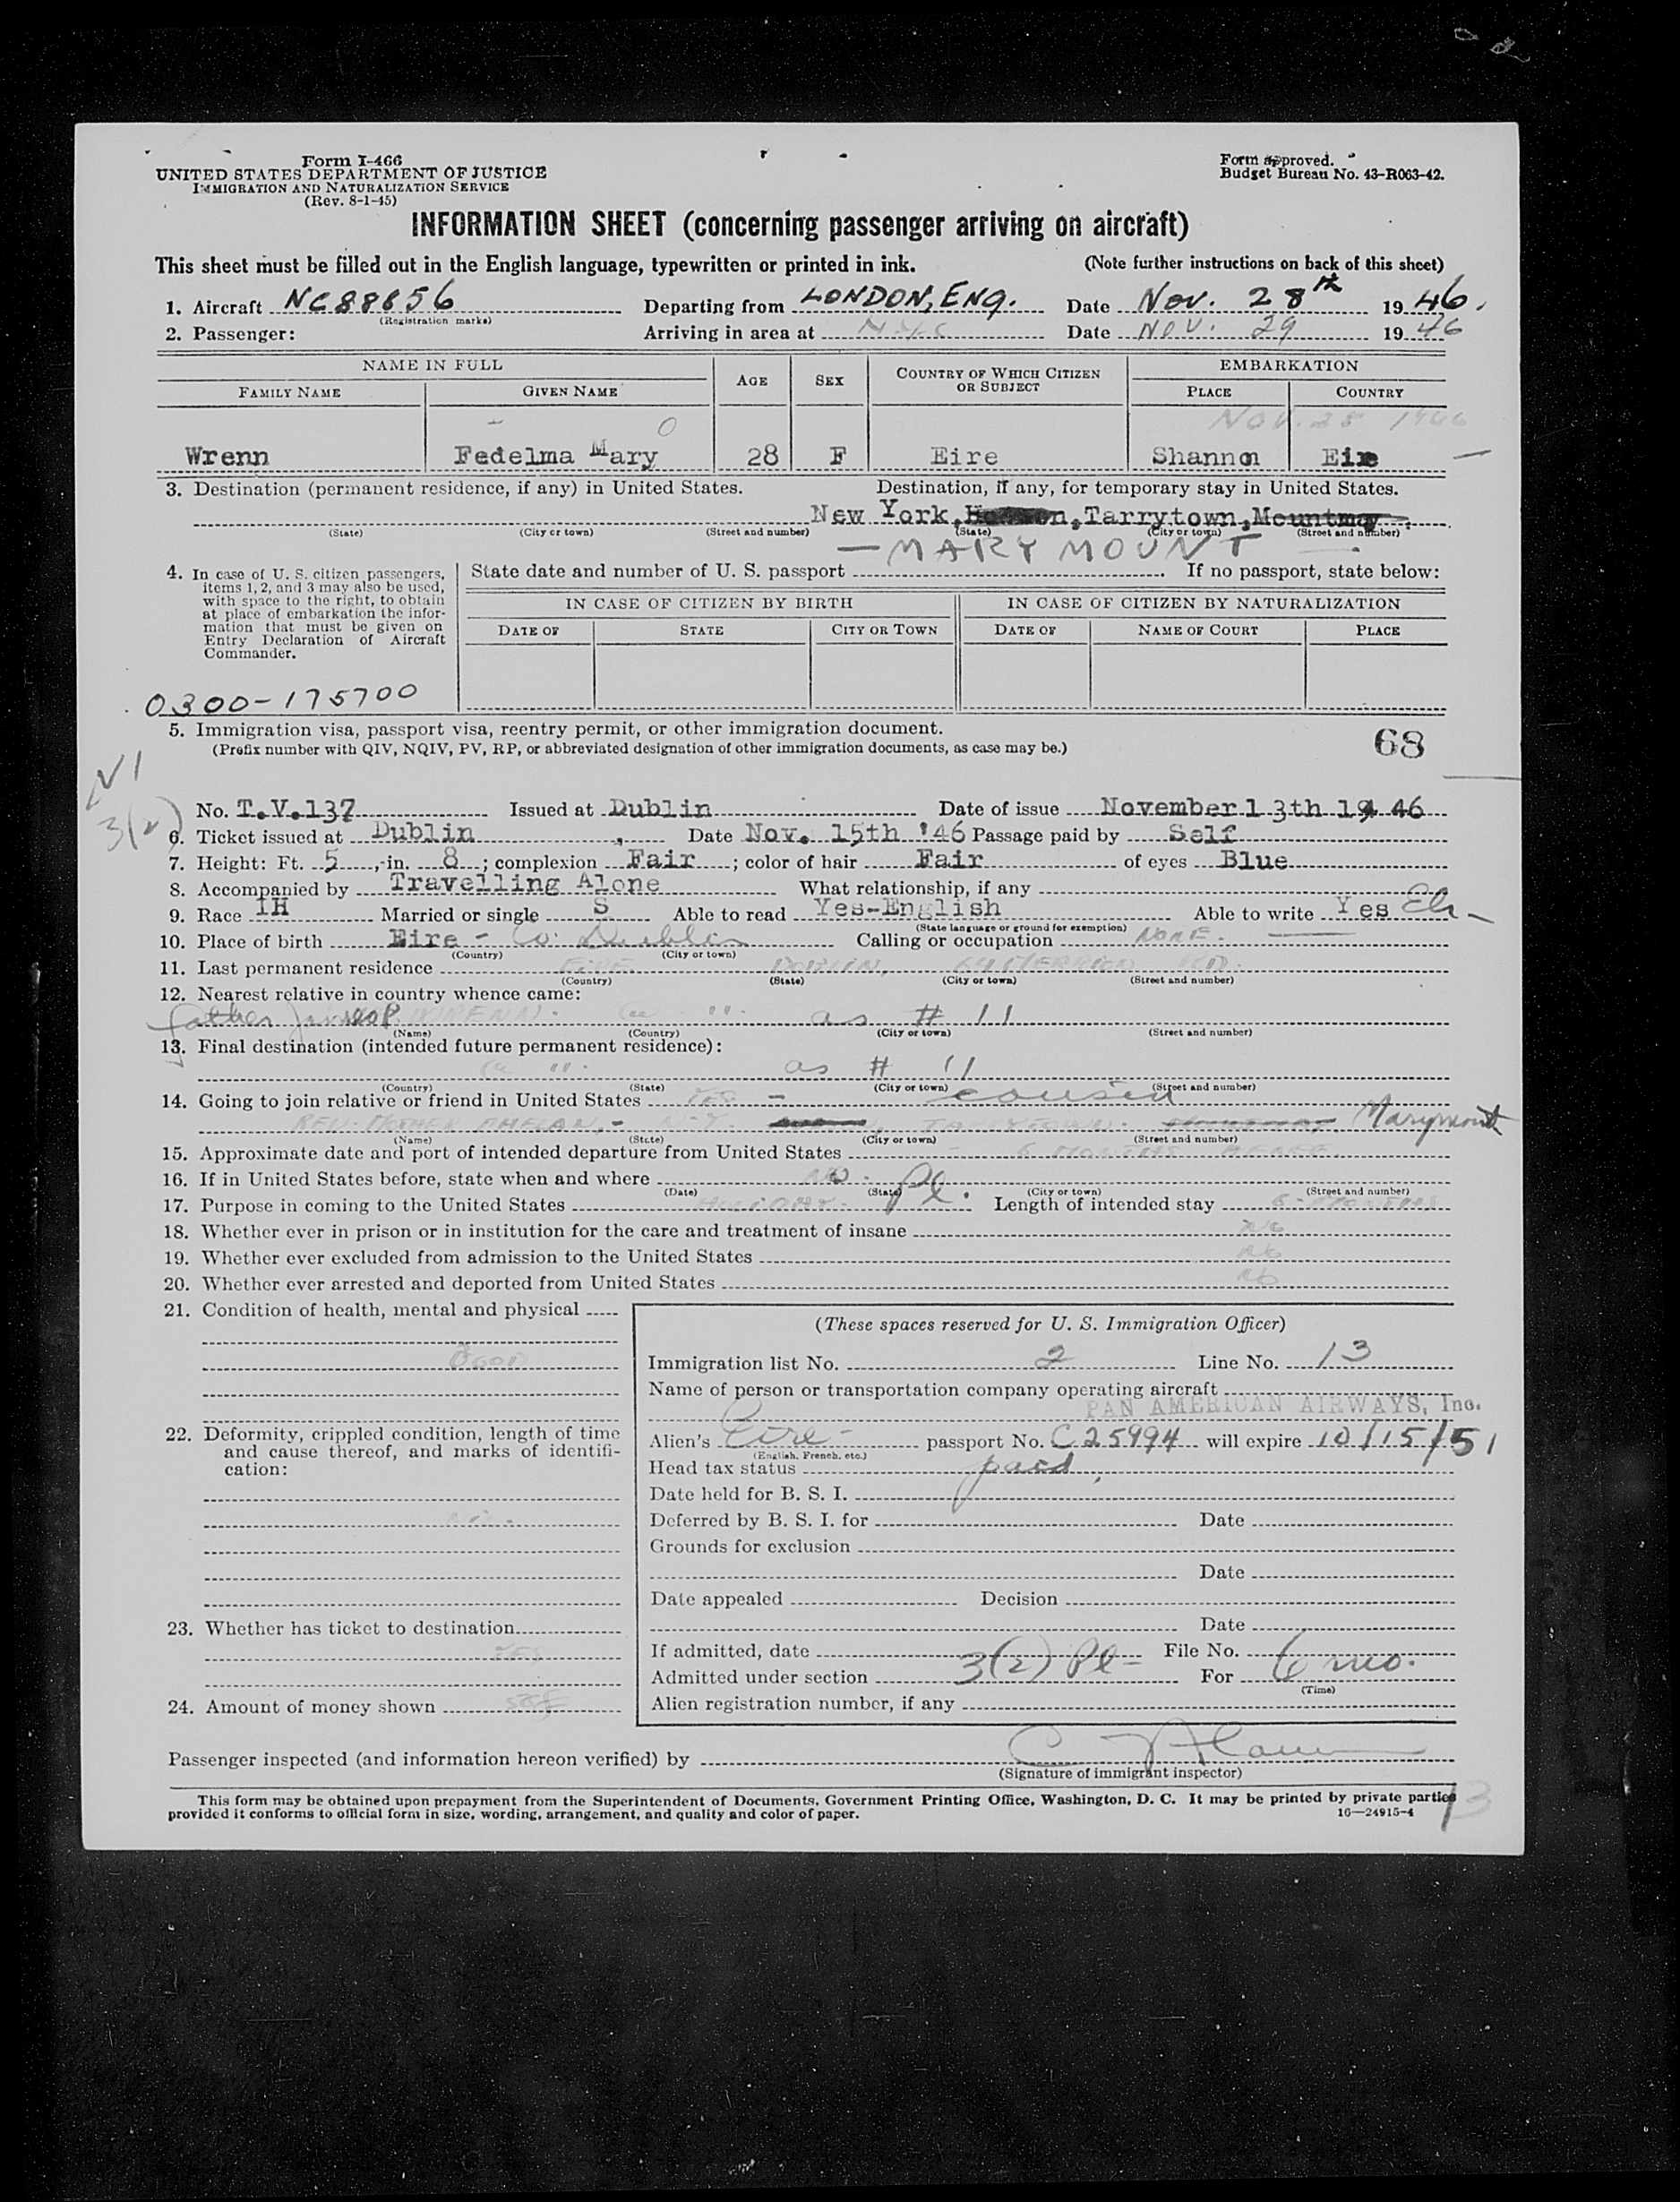 Form I-466
UNITED STATES DEPARTMENT OF JUSTICE
IMMIGRATION AND NATURALIZATION SERVICE
(Rev. 8-1-45)
Form approved.
Budget Bureau No. 43-R063-42.
INFORMATION SHEET (concerning passenger arriving on aircraft)
This sheet must be filled out in the English language, typewritten or printed in ink. (Note further instructions on back of this sheet)
1. Aircraft NC88856 Departing from LONDON, ENG. Date Nov. 28th 1946.
(Registration marks)
2. Passenger: Arriving in area at N.Y.C Date Nov. 29 1946
NAME IN FULL AGE SEX COUNTRY OF WHICH CITIZEN OR SUBJECT EMBARKATION
FAMILY NAME GIVEN NAME PLACE COUNTRY
NOV. 28 1946
Wrenn Fedelma Mary 28 F Eire Shannon Eire
3. Destination (permanent residence, if any) in United States. Destination, if any, for temporary stay in United States.
New York, Tarrytown,
(State) (City or town) (Street and number) (State) (City or town) (Street and number)
— MARY MOUNT
4. In case of U. S. citizen passengers, items 1, 2, and 3 may also be used, with space to the right, to obtain at place of embarkation the information that must be given on Entry Declaration of Aircraft Commander.
State date and number of U. S. passport . If no passport, state below:
IN CASE OF CITIZEN BY BIRTH IN CASE OF CITIZEN BY NATURALIZATION
DATE OF STATE CITY OR TOWN DATE OF NAME OF COURT PLACE
0300-175700
5. Immigration visa, passport visa, reentry permit, or other immigration document.
(Prefix number with QIV, NQIV, PV, RP, or abbreviated designation of other immigration documents, as case may be.)
68
3(2)
No. T.V.137 Issued at Dublin Date of issue November 13th 19 46
6. Ticket issued at Dublin, Date Nov. 15th '46 Passage paid by Self
7. Height: Ft. 5, in. 8; complexion Fair; color of hair Fair of eyes Blue
8. Accompanied by Travelling Alone What relationship, if any
9. Race IH Married or single S Able to read Yes-English Able to write Yes
(State language or ground for exemption)
10. Place of birth Eire - Co. Dublin Calling or occupation NONE.
(Country) (City or town)
11. Last permanent residence EIRE DUBLIN,
(Country) (State) (City or town) (Street and number)
12. Nearest relative in country whence came:
father as # 11
(Name) (Country) (City or town) (Street and number)
13. Final destination (intended future permanent residence):
as # 11
(Country) (State) (City or town) (Street and number)
14. Going to join relative or friend in United States YES - cousin
REV. MOTHER PHELAN, - N.Y. TARRYTOWN. Marymount
(Name) (State) (City or town) (Street and number)
15. Approximate date and port of intended departure from United States 6 MONTHS HENCE.
16. If in United States before, state when and where NO.
(Date) (State) (City or town) (Street and number)
17. Purpose in coming to the United States HOLIDAY. Pl. Length of intended stay 6 - MONTHS
18. Whether ever in prison or in institution for the care and treatment of insane No
19. Whether ever excluded from admission to the United States No
20. Whether ever arrested and deported from United States No
21. Condition of health, mental and physical
GOOD
22. Deformity, crippled condition, length of time and cause thereof, and marks of identification:
23. Whether has ticket to destination
YES
24. Amount of money shown
(These spaces reserved for U. S. Immigration Officer)
Immigration list No. 2 Line No. 13
Name of person or transportation company operating aircraft
PAN AMERICAN AIRWAYS, Inc.
Alien's Eire - passport No. C 25994 will expire 10/15/51
(English, French, etc.)
Head tax status paid
Date held for B. S. I.
Deferred by B. S. I. for Date
Grounds for exclusion
Date
Date appealed Decision
Date
If admitted, date File No.
Admitted under section 3(2) Pl - For 6 mo.
(Time)
Alien registration number, if any
Passenger inspected (and information hereon verified) by
(Signature of immigrant inspector)
This form may be obtained upon prepayment from the Superintendent of Documents, Government Printing Office, Washington, D. C. It may be printed by private parties
provided it conforms to official form in size, wording, arrangement, and quality and color of paper. 16—24915-4
13